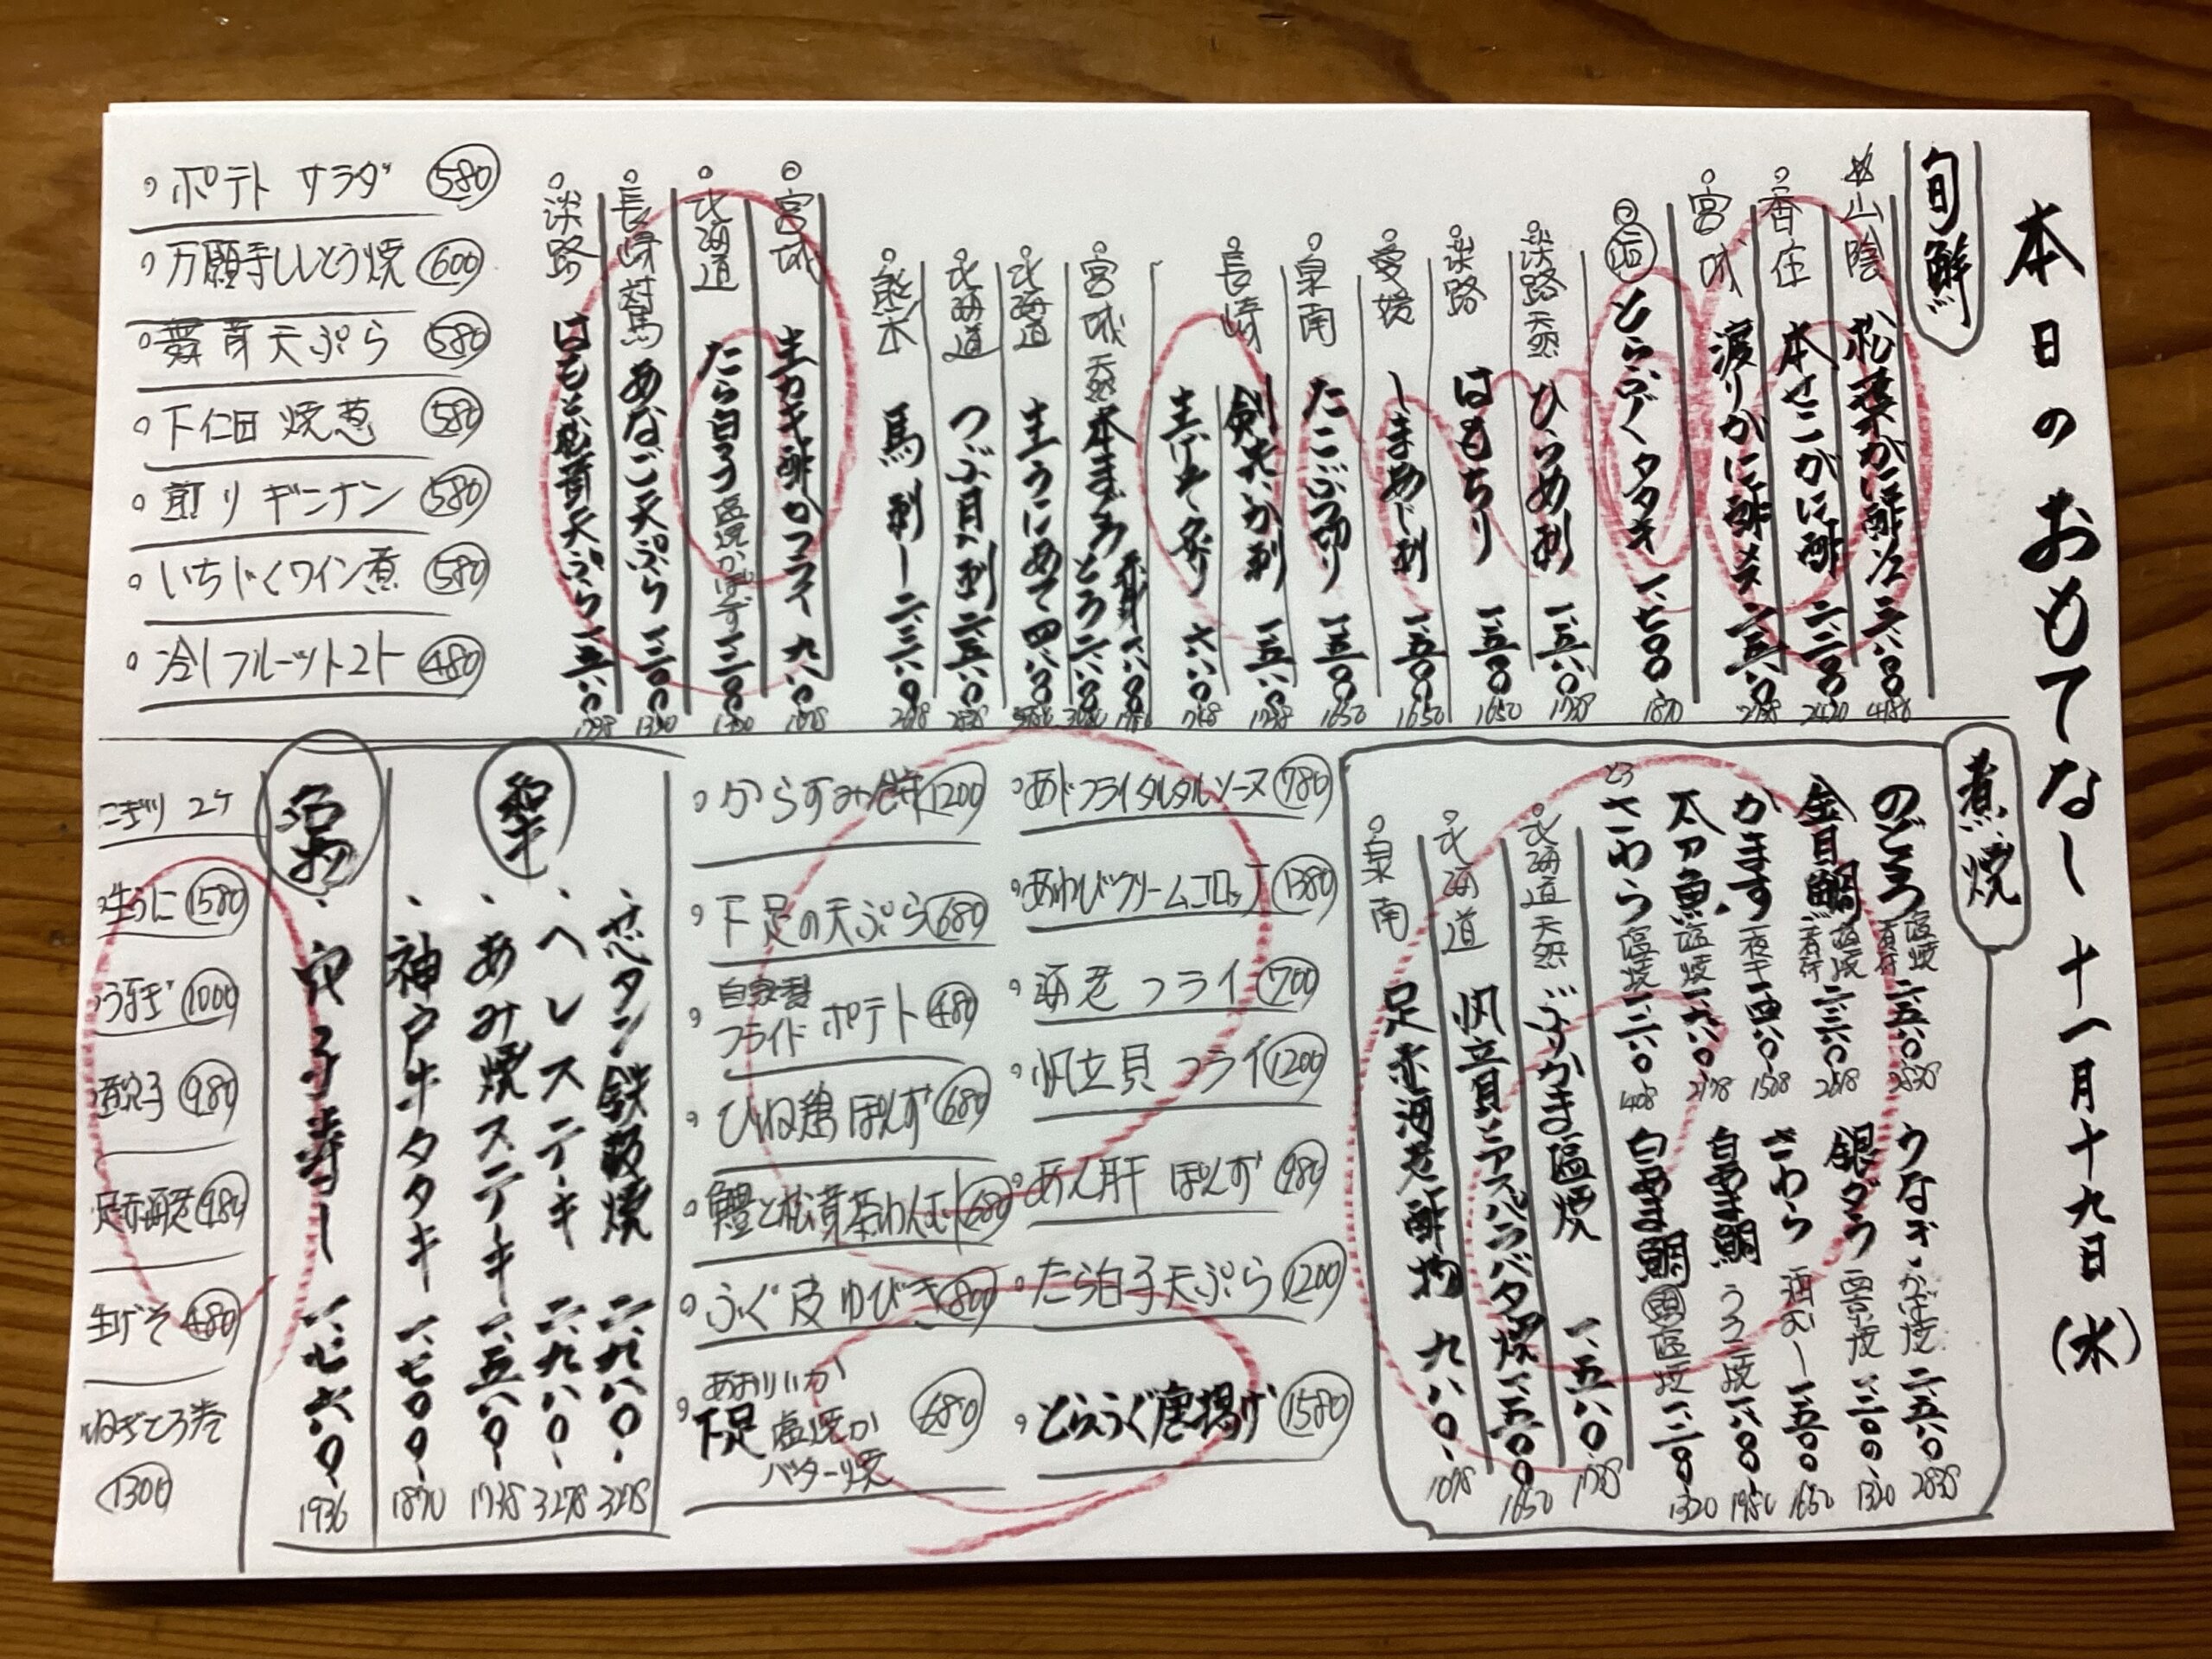 本日のおもてなし 十一月十九日(水)
旬鮮
山陰 松葉がに酢 三、八〇〇 4180
香住 本せこがに酢 二、二〇〇 2420
宮城 渡りがに酢 二、五八〇
とらふぐタタキ 一、七〇〇 1870
淡路 天然 ひらめ刺 一、五八〇 1738
淡路 はもちり 一、五〇〇 1650
愛媛 しまあじ刺 一、五〇〇 1650
泉南 たこぶつ切り 一、五〇〇 1650
長崎 剣先いか刺 一、五八〇 1738
生げそ 六八〇 748
宮城 天然 本まぐろ 赤身 とろ 二、八〇〇
北海道 生うにあて 四、八〇〇
北海道 つぶ貝刺 二、五八〇 2838
熊本 馬刺し
宮城 生カキ酢かフライ 九八〇 1078
北海道 たら白子 塩焼かぽんず
長崎 対馬 あなご天ぷら
淡路 はもと松茸天ぷら
ポテトサラダ 580
万願寺ししとう焼 600
舞茸天ぷら 580
下仁田焼葱 580
煎りギンナン 580
いちじくワイン煮 580
冷しフルーツトマト 480
煮焼
のどぐろ 塩焼 煮付 二、五八〇 2838
金目鯛 塩焼 煮付
かます 一夜干
太刀魚 塩焼 2178
とろさわら 塩焼 一、二八〇 1408
うなぎ かば焼 二、五八〇 2838
銀ダラ 西京焼 一、二〇〇 1320
さわら 酒むし 一、五〇〇 1650
白あま鯛 うろこ焼 一、八〇〇 1980
白あま鯛 塩焼 一、二〇〇 1320
北海道 天然 ぶりかま塩焼 一、五八〇 1738
北海道 帆立貝とアスパラバター焼 一、五〇〇 1650
泉南 足赤海老酢物 九八〇 1078
あじフライタルタルソース 780
あわびクリームコロッケ 1380
海老フライ 700
帆立貝フライ 1200
あん肝ぽんず 980
たら白子天ぷら 1200
とらふぐ唐揚げ 1580
からすみ 1200
下足の天ぷら 680
自家製 フライドポテト 480
ひね鶏ぽんず 680
鱧と松茸茶わんむし 680
ふぐ皮ゆびき 800
あおりいか 下足 塩焼か バター焼 680
芯タン鉄板焼 二、九八〇 3278
ヘレステーキ 二、九八〇 3278
あみ焼ステーキ 一、五八〇 1738
神戸牛タタキ 一、七〇〇 1870
穴子寿し 一、七六〇 1936
にぎり 2ケ
生うに 1580
うなぎ 1000
980
足赤海老 980
生げそ 480
ねぎとろ巻 1300